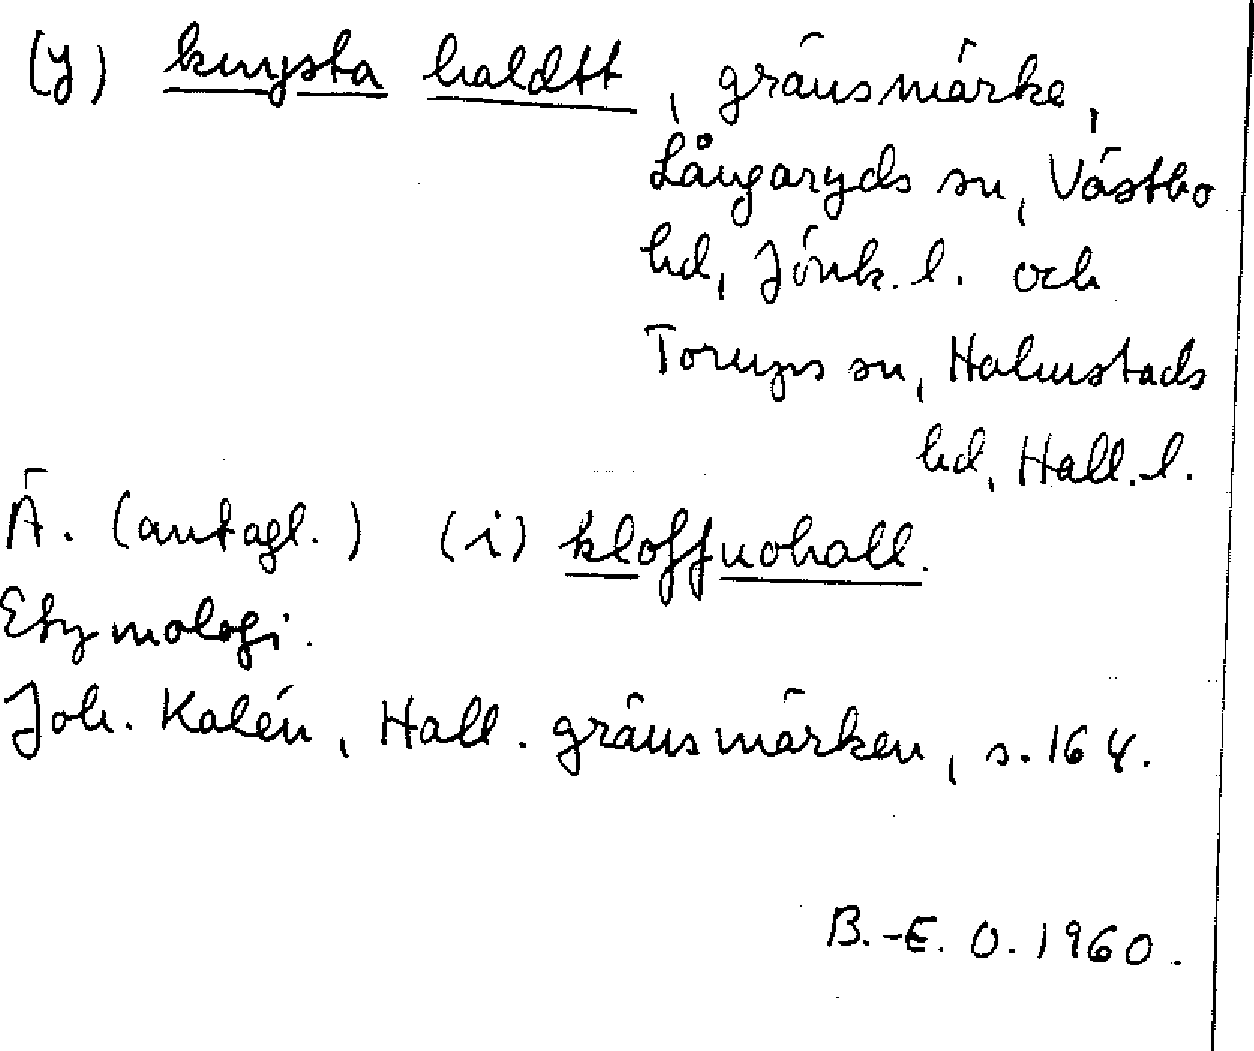 (y) knysta haldtt, gränsmärke,
Långaryds sn, Västbo
hd, Jönk. l. och
Torups sn, Halmstads
hd, Hall. l.
Ä. (antagl.) (i) kloffnohall.
Etymologi.
Joh. Kalén, Hall. gränsmärken, s. 164.
B.-E. O. 1960.